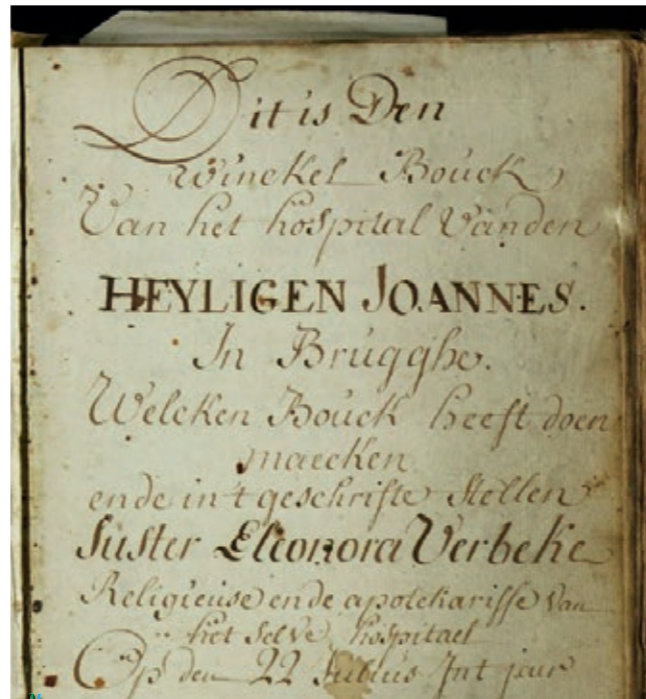 Dit is Den
Winckel Bouck
Van het hospital Vanden
HEYLIGEN JOANNES.
In Brugghe.
Welcken Bouck heeft doen
maecken
ende in't geschrifte stellen
Suster Eleonora Verbeke
Religieuse ende apotekarisse van
het selve hospitael
Op den 22 Julius Int jaar